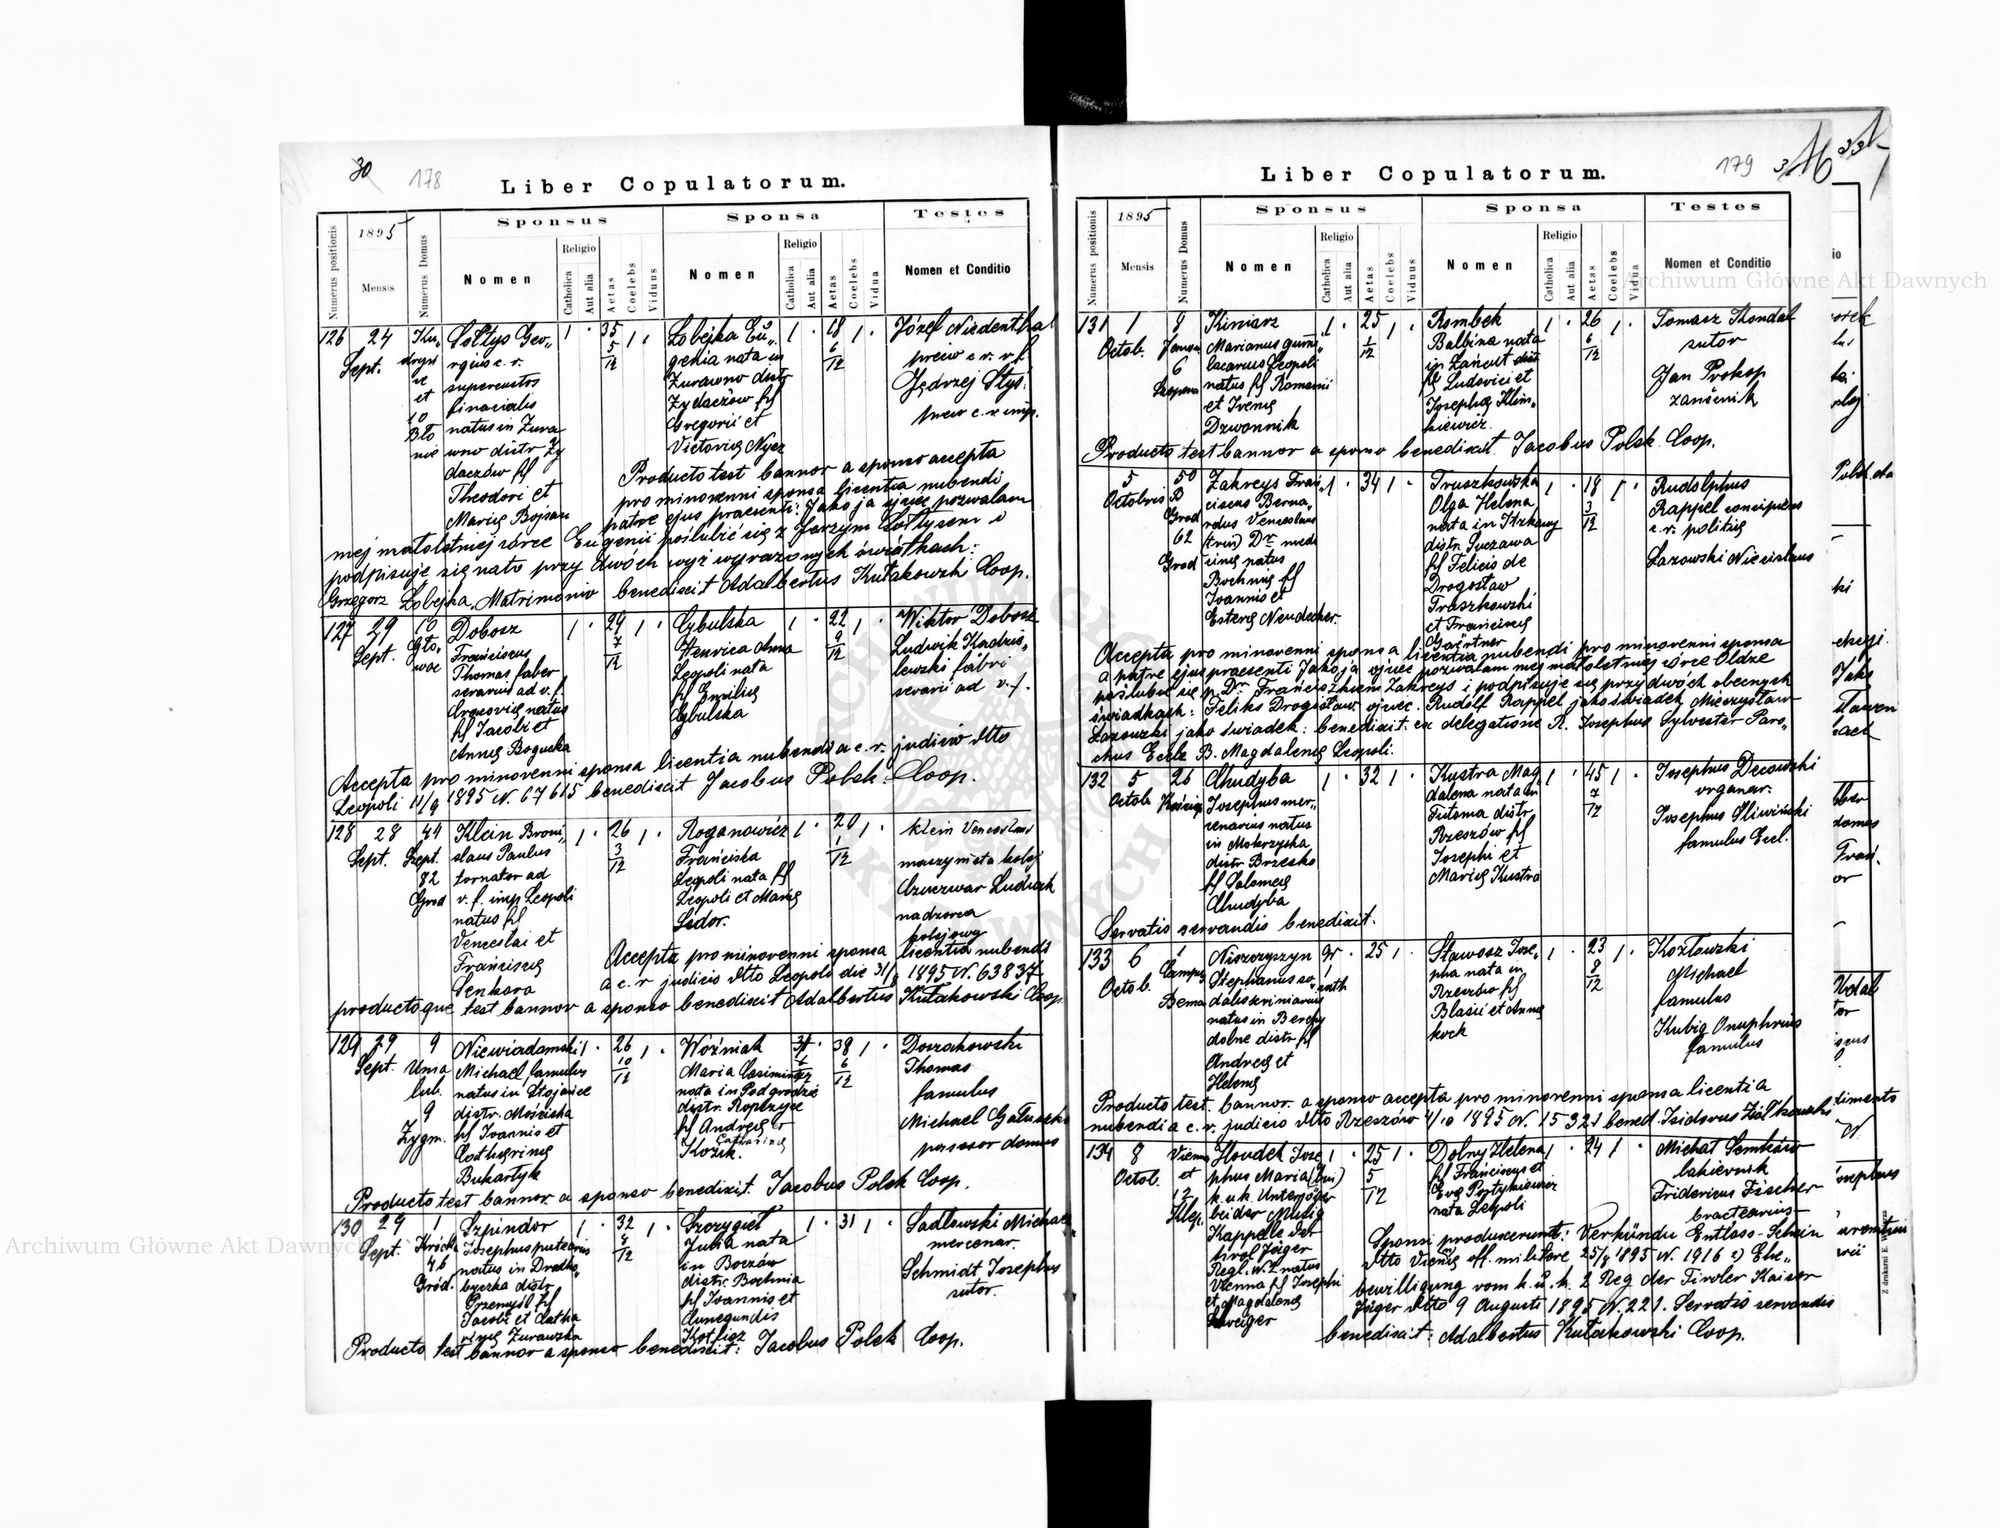 30
178
Liber Copulatorum.
Numerus positionis
1895
Mensis
Numerus Domus
Sponsus
Nomen
Religio
Catholica
Aut alia
Aetas
Coelebs
Viduus
Sponsa
Nomen
Religio
Catholica
Aut alia
Aetas
Coelebs
Vidua
Testes
Nomen et Conditio
126 24 Sept.
Sołtys Geor-
gius c. r.
supercustos
natus in Żura
wno distr Ży
daczów fil
Theodori et
Marię Bojsan
35 5/12
Łobejka Eu-
genia nata in
Żurawno distr
Żydaczów fil
Gregorii et
Victorię Nycz
18 6/12
Józef Niedenthal
Jędrzej Styś
Producto test bannor a sponso accepta
pro minorenni sponsa licentia nubendi
patre ejus praesenti: Jako ja ojciec pozwalam
mej małoletniej córce Eugenii poślubić się z Jerzym Sołtysem i
podpisuję się na to przy dwóch wyż wyrażonych świadkach:
Grzegorz Łobejka. Matrimonio benedixit Adalbertus Kułakowski Coop.
127 29 Sept.
Dobosz
Franciscus
Thomas faber
serarius ad v. f.
Cracovię natus
fil Jacobi et
Annę Bogucka
29 7/12
Cybulska
Henrica Anna
Leopoli nata
fil Emilię
Cybulska
22 9/12
Wiktor Dobosz
Ludwik
lewski fabri
serarii ad v. f.
Accepta pro minorenni sponsa licentia nubendi a c. r. judicio dtto
Leopoli 11/9 1895 N. 67615 benedixit Jacobus Polek Coop.
128 28 Sept.
44 Szept.
82 Grod
Klein Broni-
slaus Paulus
tornator ad
v. f. imp Leopoli
natus fil
Venceslai et
Franciscę
Senkora
26 3/12
Roganowicz
Franciska
Leopoli nata fil
Leopoli et Marię
Sedor.
20 1/12
Klein Venceslaus
maszynista kolej
Czuczwar Ludwik
nadzorca
kolejowy
Accepta pro minorenni sponsa licentia nubendi
a c. r judicio dtto Leopoli die 31/8 1895 N. 63837
productoque test bannor a sponso benedixit Adalbertus Kułakowski Coop.
129 29 Sept.
9 Unia lub.
9 Zygm.
Niewiadomski
Michael famulus
natus in Stojańce
distr. Mościska
fil Joannis et
Catharinę
Bukartyk
26 10/12
Woźniak
Maria Casimira
nata in Podgrodzie
distr. Ropczyce
fil Andreę et
Catharinę
Kozik.
38 6/12
Doszakowski
Thomas
famulus
Michael Gałuszka
possessor domus
Producto test bannor a sponso benedixit. Jacobus Polek Coop.
130 29 Sept.
46 Gród.
Szpindor
Josephus putearius
natus in Droho-
byczka distr
Przemyśl fil
Jacobi et Catha
rinę Żurawska
32 8/12
Szczygieł
Julia nata
in Boczów
distr Bochnia
fil Joannis et
Cunegundis
31
Sadłowski Michael
mercenar.
Schmidt Josephus
sutor.
Producto test bannor a sponso benedixit: Jacobus Polek Coop.
179
Liber Copulatorum.
Numerus positionis
1895
Mensis
Numerus Domus
Sponsus
Nomen
Religio
Catholica
Aut alia
Aetas
Coelebs
Viduus
Sponsa
Nomen
Religio
Catholica
Aut alia
Aetas
Coelebs
Vidua
Testes
Nomen et Conditio
131 1 Octob.
Kiniarz
Marianus gumi-
lacarius Leopoli
natus fil Romani
et Irenę
Dzwonnik
25 1/12
Rombek
Balbina nata
in Łańcut distr
fil Ludovici et
Josephę Klim-
kiewicz.
26 6/12
Tomasz Thondal
sutor
Jan Prokop
Producto test bannor a sponso benedixit. Jacobus Polek Coop.
5 Octobris
50 B Grod
62 Grod
Zakreys Fran-
ciscus Berna-
rdus Venceslaus
(trin) Dr medi
cinę natus
Bochnię fil
Joannis et
Esterę Neudecher.
34
Truszkowska
Olga Helena
nata in Itzkany
distr. Suczawa
fil Felicis de
Drogosław
Truszkowski
et Franciscę
Gärtner
18 3/12
Rudolphus
Rappel concipiens
c. r. politię
Łazowski Miecislaus
Accepta pro minorenni sponsa licentia nubendi pro minorenni sponsa
a patre ejus praesenti Jako ja ojciec pozwalam mej małoletniej córce Oldze
poślubić się p. Dr Franciszkiem Zakreys i podpisuję się przy dwóch obecnych
świadkach: Feliks Drogosław ojciec. Rudolf Rappel jako świadek Mieczysław
Łazowski jako świadek: benedixit. ex delegatione R. Josephus Sylvester Paro-
chus Eccle B. Magdalenę Leopoli.
132 5 Octob
26
Chudyba
Josephus mer-
cenarius natus
in Mokrzyska
distr Brzesko
fil Salomeę
Chudyba
32
Kustra Mag
dalena nata in
Futoma distr
Rzeszów fil
Josephi et
Marię Kustra
45 7/12
Josephus Decowski
organar.
Josephus Śliwiński
famulus Eccl.
Servatis servandis benedixit.
133 6 Octob.
1 Campus Berna
Niszczyszyn
Stephanus so-
dalis scriniarius
natus in Berehy
dolne distr fil
Andreę et
Helenę
gr. cath
25
Stawosz Jose-
pha nata in
Rzeszów fil
Blasii et Annę
23 8/12
Kozłowski
Michael
famulus
Kubig Onuphrius
famulus
Producto test. bannor. a sponso accepta pro minorenni sponsa licentia
nubendi a c. r. judicio dtto Rzeszów 4/10 1895 N. 15321 bened. Isidorus Ziółkowski
134 8 Octob.
Vienna et 12
Houdek Jose
phus Maria (bin)
k. u. k. Unterjäger
bei der Musig
Kappele der
tirol Jäger
Regt. N. 2 natus
Vienna fil Josephi
et Magdalenę
25 5/12
Dolny Helena
fil Francisci et
Evę
nata Leopoli
24
Michał Semków
lakiernik
Fridericus Fischer
bractearius
Sponsi produxerunt: Verkündu Entlass-Schein
dtto Vienę off. militare 25/8 1895 N. 1916 2) Ehe-
bewilligung vom k. u. k. 2 Reg der Tiroler Kaiser
Jäger dtto 9 Augusti 1895 N. 221. Servatis servandis
benedixit: Adalbertus Kułakowski Coop.
Archiwum Główne Akt Dawnych
Archiwum Główne Akt Dawnych